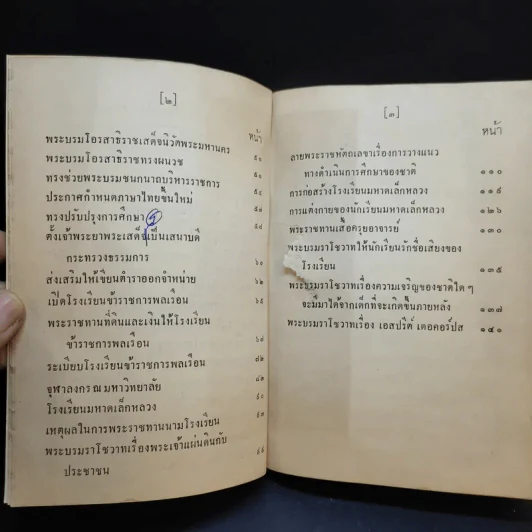 [๒]
หน้า
พระบรมโอรสาธิราชเสด็จนิวัตพระมหานคร
พระบรมโอรสาธิราชทรงผนวช ๕๐
ทรงช่วยพระบรมชนกนาถบริหารราชการ
ประกาศกำหนดภาษาไทยขึ้นใหม่
ทรงปรับปรุงการศึกษา
ตั้งเจ้าพระยาพระเสด็จเป็นเสนาบดี
กระทรวงธรรมการ ๖๐
ส่งเสริมให้เขียนตำราออกจำหน่าย ๖๒
เปิดโรงเรียนข้าราชการพลเรือน ๖๕
พระราชทานที่ดินและเงินให้โรงเรียน
ข้าราชการพลเรือน
ระเบียบโรงเรียนข้าราชการพลเรือน
จุฬาลงกรณมหาวิทยาลัย
โรงเรียนมหาดเล็กหลวง
เหตุผลในการพระราชทานนามโรงเรียน
พระบรมราโชวาทเรื่องพระเจ้าแผ่นดินกับ
ประชาชน
[๓]
หน้า
ลายพระราชหัตถเลขาเรื่องการวางแนว
ทางดำเนินการศึกษาของชาติ ๑๑๐
การก่อสร้างโรงเรียนมหาดเล็กหลวง ๑๑๕
การแต่งกายของนักเรียนมหาดเล็กหลวง ๑๒๖
พระราชทานเสื้อครุยอาจารย์ ๑๓๓
พระบรมราโชวาทให้นักเรียนรักชื่อเสียงของ
โรงเรียน ๑๓๕
พระบรมราโชวาทเรื่องความเจริญของชาติใด ๆ
จะมีมาได้จากเด็กที่จะเกิดขึ้นภายหลัง ๑๓๗
พระบรมราโชวาทเรื่อง เอสปริต์ เดอคอร์ปส ๑๔๑